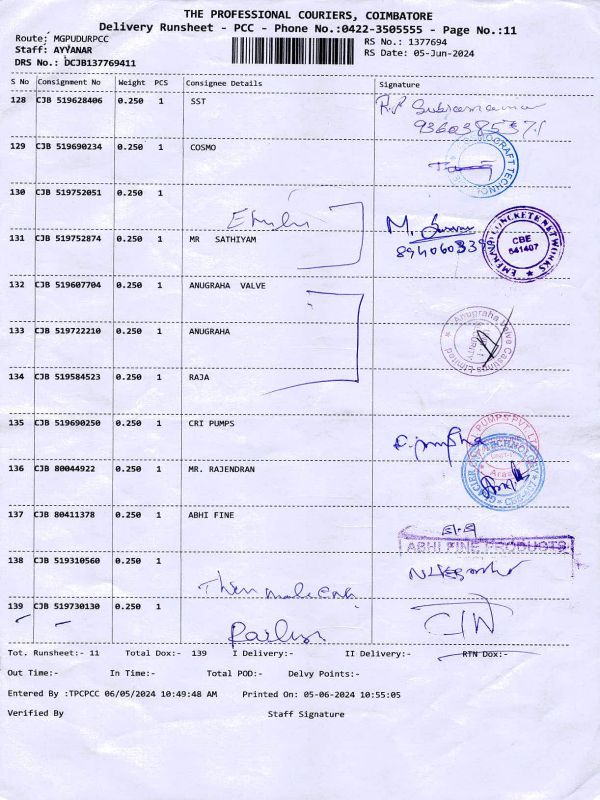 THE PROFESSIONAL COURIERS, COIMBATORE
Delivery Runsheet - PCC - Phone No.:0422-3505555 - Page No.:11
Route: MGPUDURPCC
RS No.: 1377694
Staff: AYYANAR
RS Date: 05-Jun-2024
DRS No.: DCJB137769411
S No Consignment No Weight PCS Consignee Details Signature
128 CJB 519628406 0.250 1 SST
129 CJB 519690234 0.250 1 COSMO
130 CJB 519752051 0.250 1
131 CJB 519752874 0.250 1 MR SATHIYAM M.
EMERALD CONCRETE NETWORKS CBE 641407
132 CJB 519607704 0.250 1 ANUGRAHA VALVE
Anugraha Valve Castings Limited
133 CJB 519722210 0.250 1 ANUGRAHA
134 CJB 519584523 0.250 1 RAJA
135 CJB 519690250 0.250 1 CRI PUMPS
PUMPS PVT. LTD
136 CJB 80044922 0.250 1 MR. RAJENDRAN
137 CJB 80411378 0.250 1 ABHI FINE
ABHI FINE PRODUCTS
138 CJB 519310560 0.250 1
139 CJB 519730130 0.250 1
Tot. Runsheet:- 11 Total Dox:- 139 I Delivery:- II Delivery:- RTN Dox:-
Out Time:- In Time:- Total POD:- Delvy Points:-
Entered By :TPCPCC 06/05/2024 10:49:48 AM Printed On: 05-06-2024 10:55:05
Verified By Staff Signature